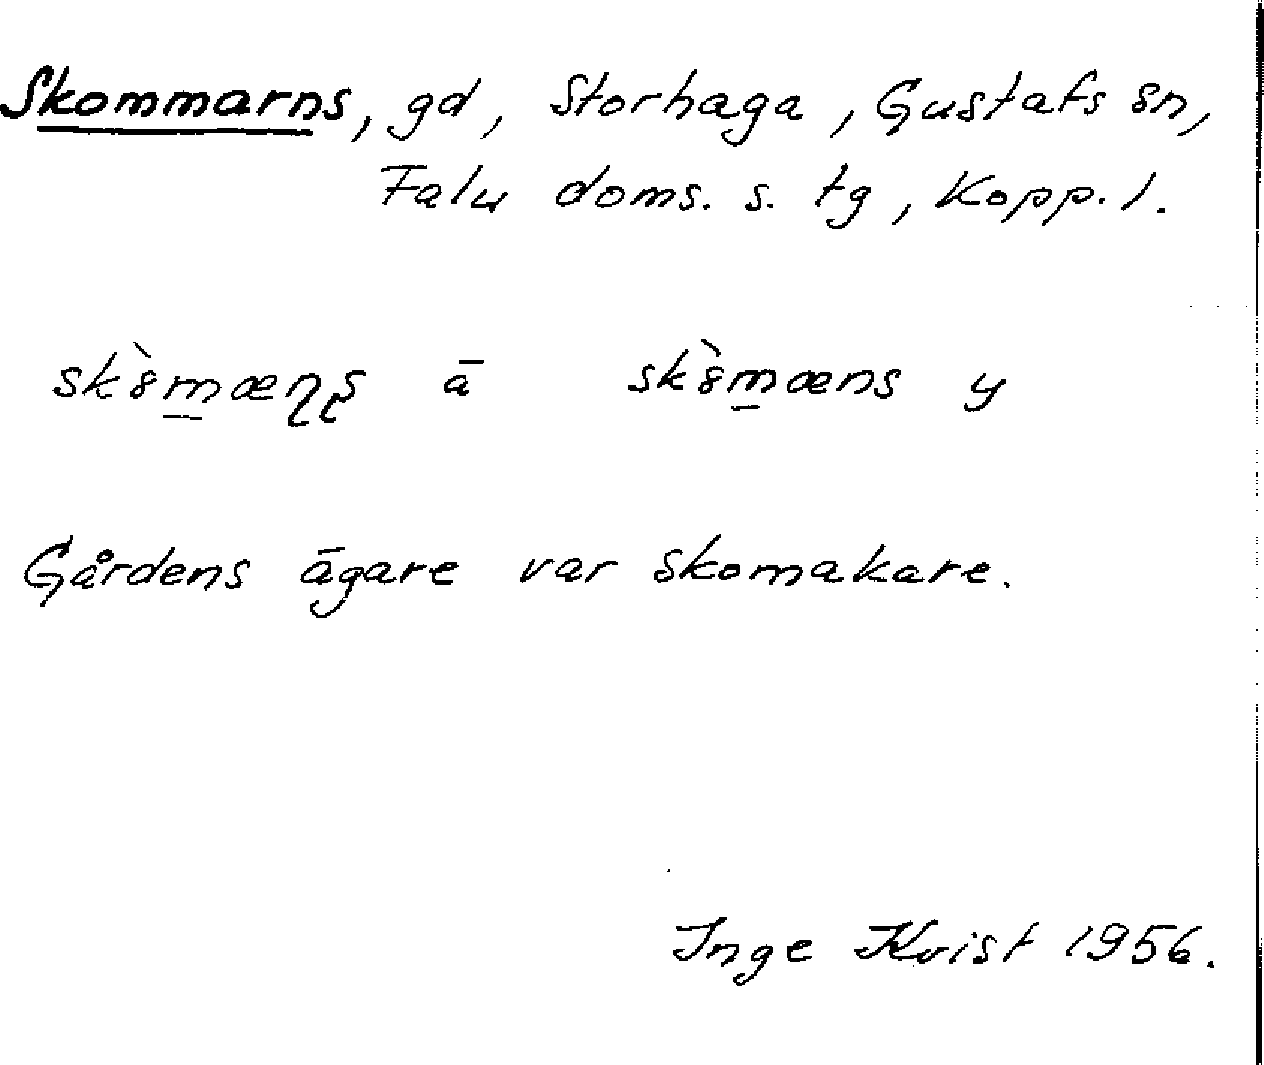 Skommarns, gd, Storhaga, Gustafs sn,
Falu doms. s. tg, Kopp. l.
sk8̀m̲æɳʂ ä sk8̀m̲æns y
Gårdens ägare var skomakare.
Inge Kvist 1956.